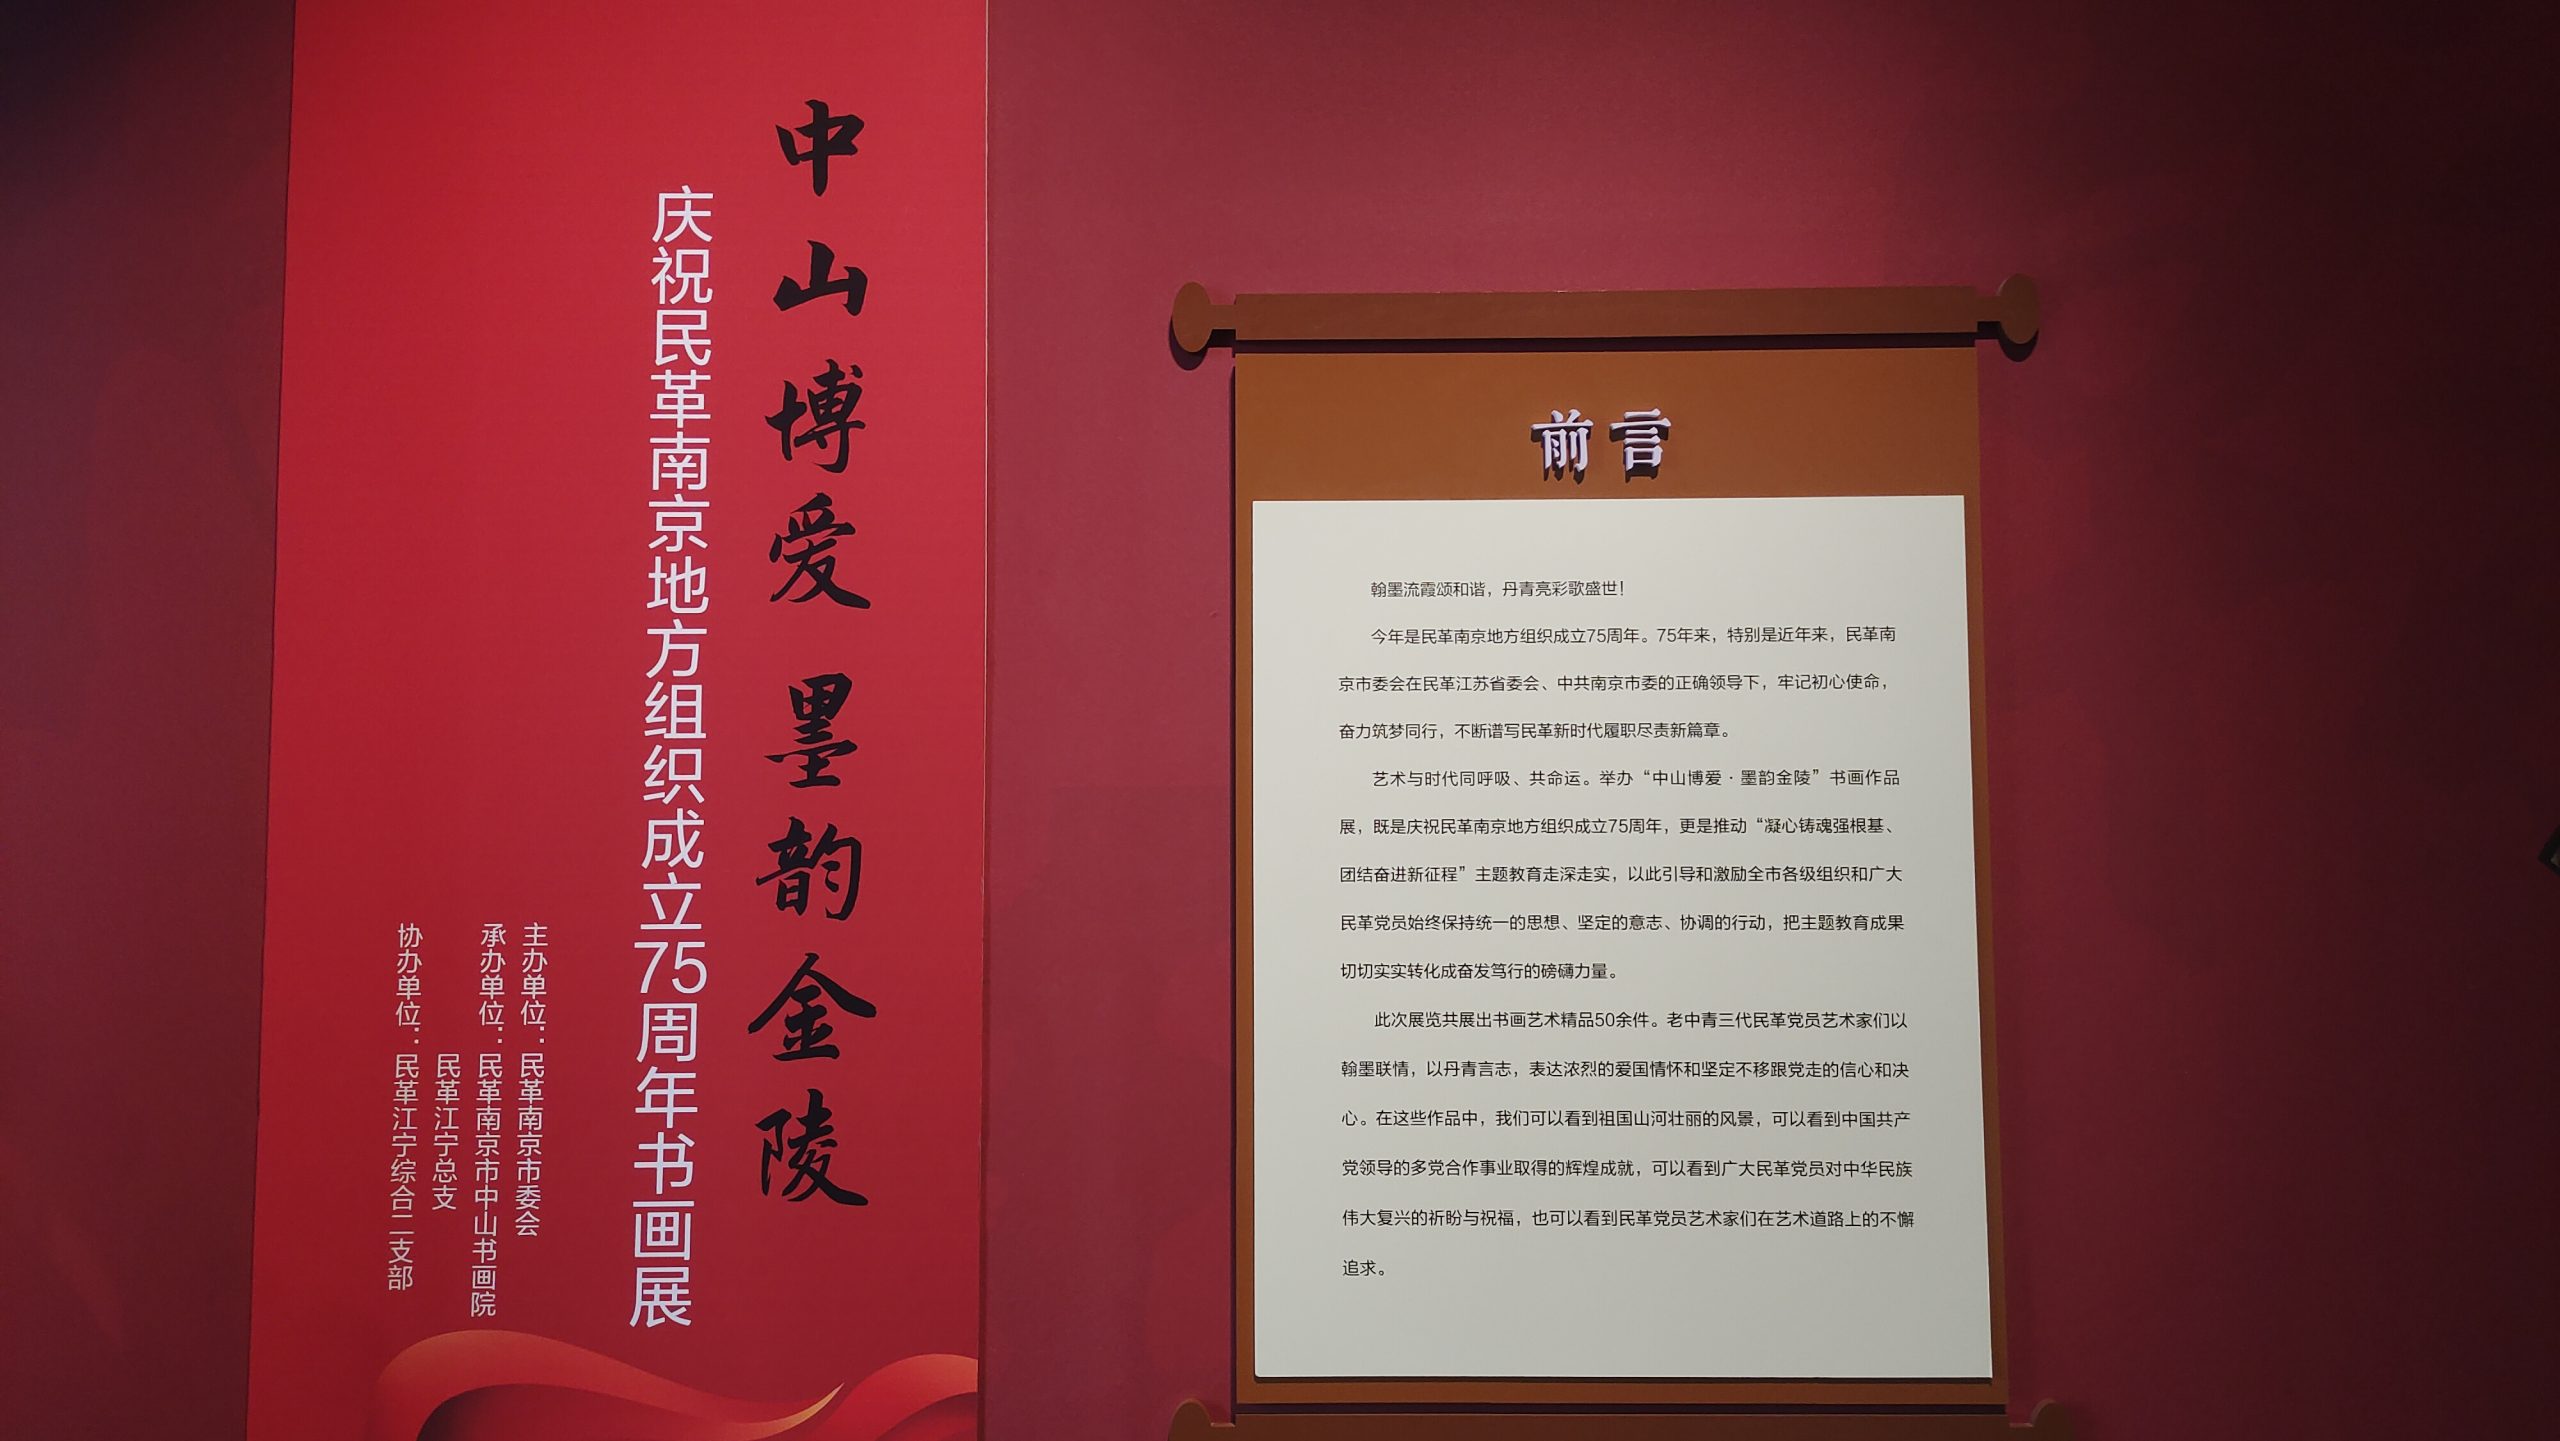 中山博爱 墨韵金陵
庆祝民革南京地方组织成立75周年书画展
主办单位：民革南京市委会
承办单位：民革南京市中山书画院
民革江宁总支
协办单位：民革江宁综合二支部
前言
翰墨流霞颂和谐，丹青亮彩歌盛世！
今年是民革南京地方组织成立75周年。75年来，特别是近年来，民革南
京市委会在民革江苏省委会、中共南京市委的正确领导下，牢记初心使命，
奋力筑梦同行，不断谱写民革新时代履职尽责新篇章。
艺术与时代同呼吸、共命运。举办“中山博爱·墨韵金陵”书画作品
展，既是庆祝民革南京地方组织成立75周年，更是推动“凝心铸魂强根基、
团结奋进新征程”主题教育走深走实，以此引导和激励全市各级组织和广大
民革党员始终保持统一的思想、坚定的意志、协调的行动，把主题教育成果
切切实实转化成奋发笃行的磅礴力量。
此次展览共展出书画艺术精品50余件。老中青三代民革党员艺术家们以
翰墨联情，以丹青言志，表达浓烈的爱国情怀和坚定不移跟党走的信心和决
心。在这些作品中，我们可以看到祖国山河壮丽的风景，可以看到中国共产
党领导的多党合作事业取得的辉煌成就，可以看到广大民革党员对中华民族
伟大复兴的祈盼与祝福，也可以看到民革党员艺术家们在艺术道路上的不懈
追求。